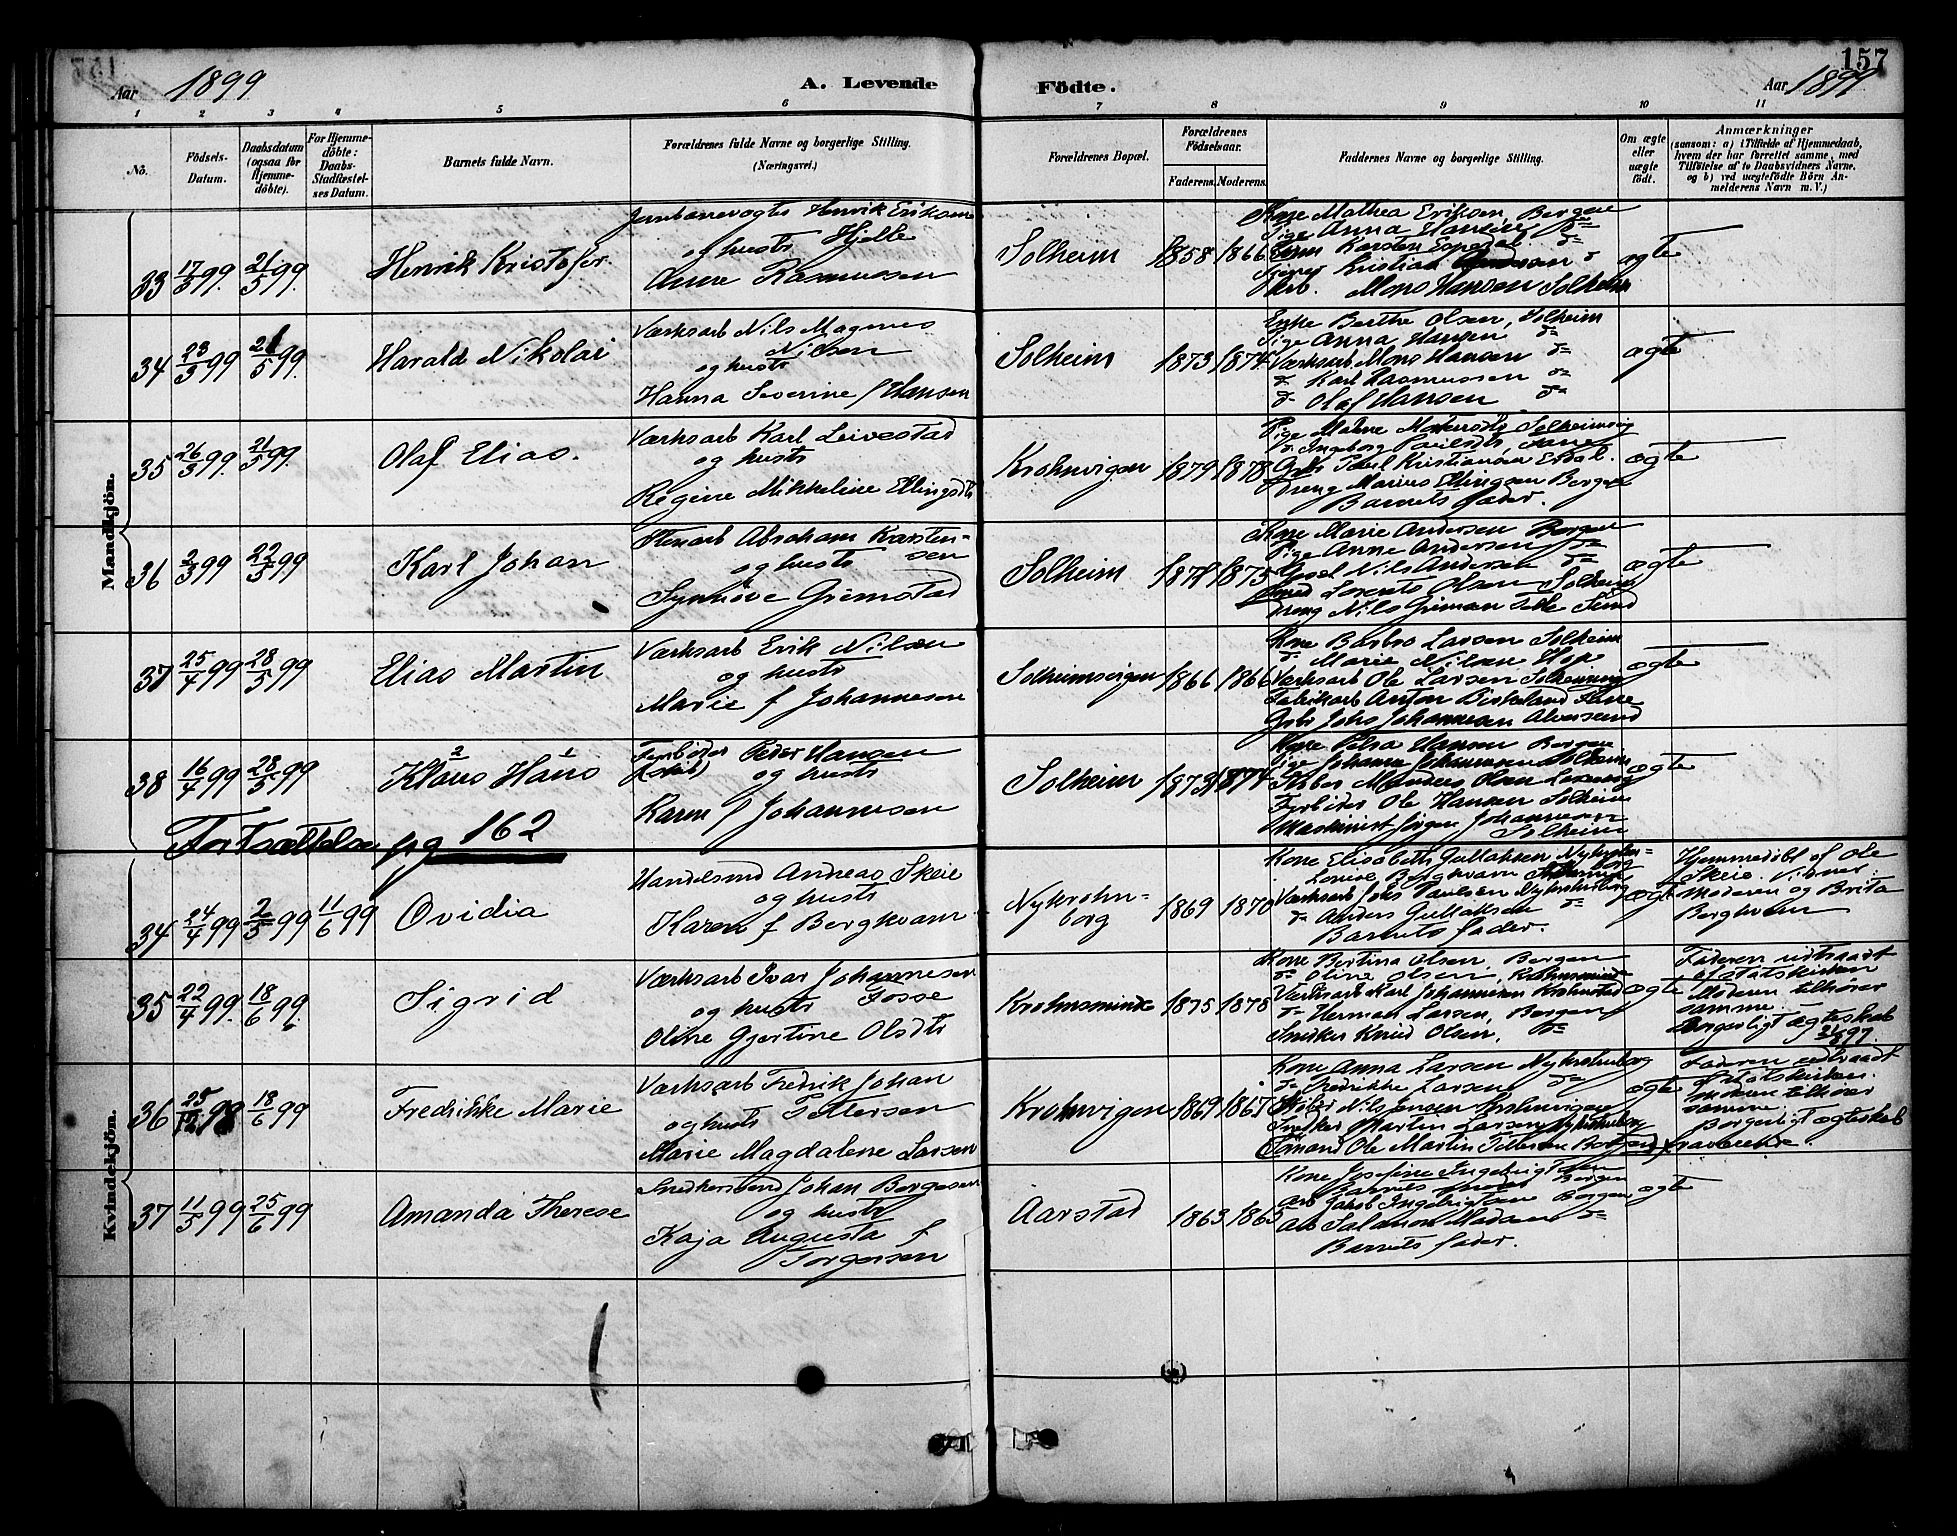 157
Aar 1899
A. Levende Födte.
Aar 1899
1 2 3 4 5 6 7 8 9 10 11
No.
Födsels-Datum.
Daabsdatum (ogsaa for Hjemme-döbte).
For Hjemme-döbte: Daabs-Stadfæstel-ses Datum.
Barnets fulde Navn.
Forældrenes fulde Navne og borgerlige Stilling.
(Næringsvei.)
Forældrenes Bopæl.
Forældrenes Födselsaar.
Faderens. Moderens.
Faddernes Navne og borgerlige Stilling.
Om ægte eller uægte födt.
Anmærkninger
(saasom: a) i Tilfælde af Hjemmedaab, hvem der har forrettet samme, med Tilföielse af to Daabsvidners Navne, og b) ved uægtefödte Börn An-melderens Navn m. V.)
Mandkjön.
33 17/3 99. 21/5 99.
Henrik Kristofer.
Henrik Eriksen
og hustr Hjelle
Anne Rasmussen
Solheim 1858 1866
Kone Mathea Eriksen, Bergen
Pige Anna Hansen do
Karsten Espedal do
Kristian
Arb. Mons Hansen Solheim
ægte
34 23/3 99 21/5 99.
Harald Nikolai
Værksarb Nils Magnus
Nilsen
og hustr
Hanna Severine f Hansen
Solheim 1873 1874
Enke Berthe Olsen, Solheim
Pige Anna Hansen do
Værksarb Mons Hansen do
do Karl Rasmussen do
do Olaf Hansen do
ægte
35 26/3 99. 21/5 99.
Olaf Elias.
Værksarb Karl Leivestad
og hustr
Regine Mikkeline Ellingsdtr
Krohnvigen 1879 1878
Pige Malene
do Ingeborg
Paul Kristiansen
Dreng Marius Ellingsen Bergen
Barnets fader.
ægte
36 2/3 99 22/5 99
Karl Johan
Stenarb Abraham Karsten-
sen
og hustr
Synnöve Grimstad
Solheim 1875
Kone Marie Andersen Bergen
Pige Anne Andersen do
Nils Andersen do
Smed Lorents Olsen Solheim
Dreng Nils Sund
ægte
37 25/4 99 28/5 99
Elias Martin
Værksarb Erik Nilsen
og hustr
Marie f Johannesen
Solheimsvigen 1866 1866
Kone Barbro Larsen Solheim
do Marie Nilsen Hope
Værksarb Ole Larsen Solheimsvig
Fabrikarb Anton Birkeland
Gbr Johs Johannesen Alversund
ægte
38 16/4 99 28/5 99
2 1
Klaus Hans
Fyrböder Peder Hansen
og hustr
Karen f Johannesen
Solheim 1873 1874
Kone Petra Hansen Bergen
Pige Johanne Johannesen Solheim
Mandius Olsen
Fyrböder Ole Hansen Solheim
Maskinist Jörgen Johannesen
Solheim
ægte
Fortsættelse pg 162
Kvindekjön.
34 24/4 99 2/5 99 11/6 99
Ovidia
Handelsmd Andreas Skeie
og hustr
Karen f Bergkvam
Nykrohn-
borg 1869 1870
Kone Elisabeth Gullaksen Nykrohn-
borg
Louise Bergkvam
Værksarb Johs Paulsen Nykrohnborg
do Anders Gullaksen do
Barnets fader.
ægte
Hjemmedöbt af Ole
Skeie. Vidner:
Moderen og Brita
Bergkvam
35 22/4 99. 18/6 99.
Sigrid
Værksarb Ivar Johannesen
og hustr Fosse
Oline Gjertine Olsdtr
Krohnsminde 1875 1878
Kone Bertina Olsen Bergen
do Oline Olsen, Krohnsminde
Værksarb Karl Johannesen Krohnstad
do Herman Larsen, Bergen
Snedker Knud Olsen, do
ægte
Faderen udtraadt
af Statskirken
Moderen tilhörer
samme.
Borgerligt ægteskab
36 25/12 98 18/6 99
Fredrikke Marie
Værksarb Fredrik Johan
og hustr Pettersen
Marie Magdalene Larsen
Krohnvigen 1869 1867
Kone Anna Larsen Nykrohnborg
do Fredrikke Larsen do
Nils Jensen Krohnvigen
Snedker Martin Larsen Nykrohnborg
Sömand Ole Martin Pettersen Bergen
ægte
Faderen udtraadt
af Statskirken.
Moderen tilhörer
samme
Borgerligt ægteskab
fraværende.
37 11/5 99 25/6 99
Amanda Therese
Snedkersvend Johan Bergesen
og hustr
Kaja Augusta f
Torgersen
Aarstad 1863 1865
Kone Josefine Ingebrigtsen
Barnets moder Bergen
Arb Jakob Ingebrigtsen Bergen
Arb Salamon Madsen do
Barnets fader.
ægte